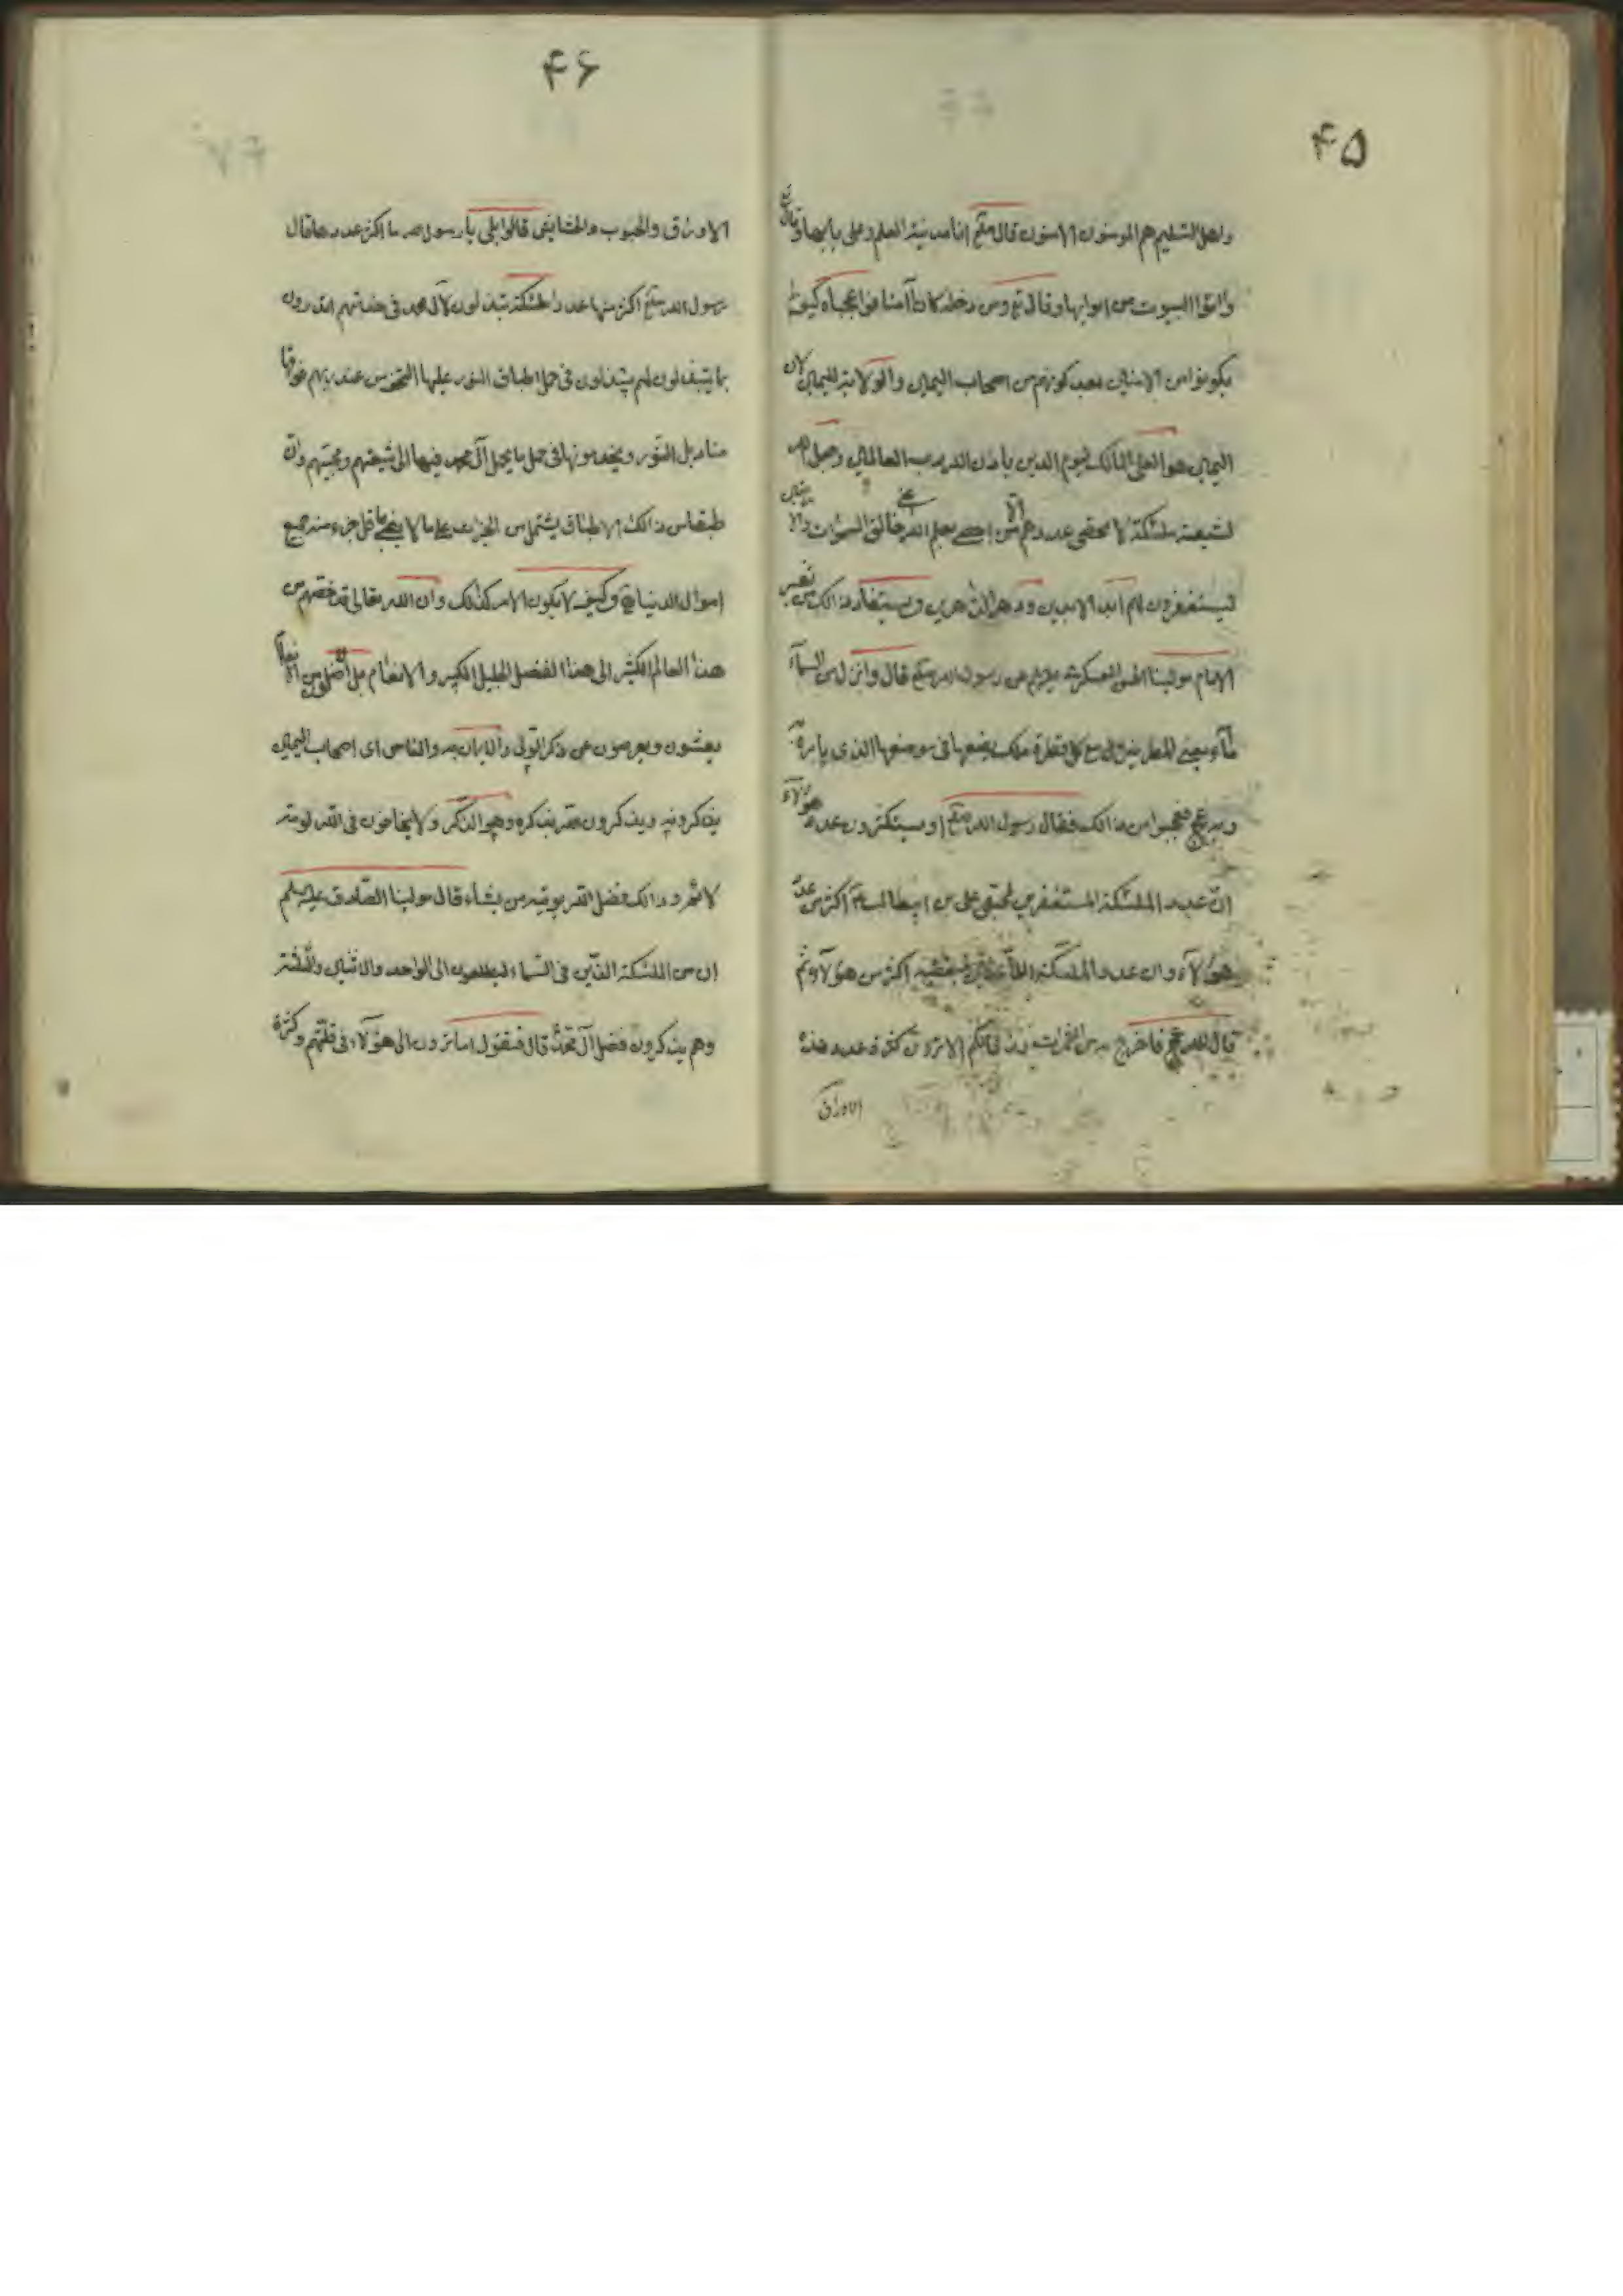 ۴۵
واهل التسليم هم المومنون الامنون قال صلعم انا مدينة العلم وعلى بابها وقال تع
واتوا البيوت من ابوابها وقال تع ومن دخله كان آمنا فوا عجباه كيف
يكونوا من الامنين بعد كونهم من اصحاب اليمين والولاية لليمين لان
اليمين هو العلى المالك ليوم الدين باذن الله رب العالمين وجعل الله
لشيعته ملئكة لا يحصى عددهم الا من احصى بعلم الله خالق السموات والا رضين
ليستغفرون لهم ابد الابدين ودهر الداهرين ويستفاد ذالك من تفسير
الامام مولينا العسكرى عن رسول الله صلعم قال وانزل من السمآء
مآء يعنى المطر ينزل مع كل قطرة ملك يضعها فى موضعها الذى يامره به
ربه عج فعجبوا من ذالك فقال رسول الله صلعم او تستكثرون عدد هؤلآء
ان عدد الملئكة المستغفرين لمحبى على بن ابيطالب اكثر من عدد
هؤلآء وان عدد الملئكة اللاعنين لمبغضيه اكثر من هؤلآء ثم
قال الله عج فاخرج به من الثمرات رزقا لكم الا ترون كثرة عدد هذه
الاوراق
۴۶
الاوراق والحبوب والحشايش قالوا بلى يا رسول الله ما اكثر عددها قال
رسول الله صلعم اكثر منها عددا ملئكة يبتذلون لآل محمد فى خدمتهم اتدرون
بما يبتذلون لهم يبتذلون فى حمل اطباق النور عليها التحف من عند ربهم فوقها
مناديل النور ويخدمونها فى حمل ما يحمل آل محمد فيها الى شيعتهم ومحبيهم وان
طبقا من ذالك الاطباق يشتمل من الخيرات على ما لا يفى باقل جزء منه جميع
اموال الدنيا وكيف لا يكون الامر كذالك وان الله تعالى قد خصهم من
هذا العالم الكثير الى هذا الفضل الجليل الكبير والانعام بل اضل من الانعام
يعشون ويعرضون عن ذكر التولى والايمان به والناس اى اصحاب اليمين
يذكرونه ويذكرون من يذكره وهو الذكر ولا يخافون فى الله لومة
لائم وذالك فضل الله يوتيه من يشآء قال مولينا الصادق عليه السلم
ان من الملئكة الذين فى السمآء ليطلعون الى الواحد والاثنين والثلثة
وهم يذكرون فضل آل محمد قال فتقول اما ترون الى هؤلآء فى قلتهم وكثرة